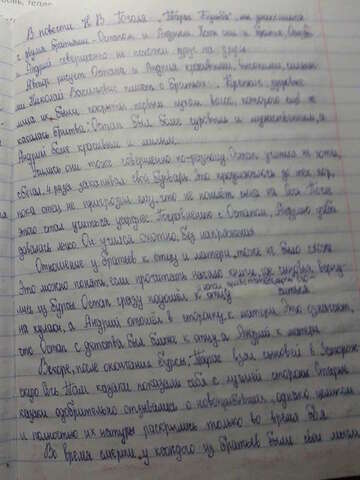 В повести Н. В. Гоголя „Тарас Бульба" мы знакомимся
с двумя братьями - Остапом и Андрием. Хотя они и братья, Остап и
Андрий совершенно не похожи друг на друга.
Автор рисует Остапа и Андрия красивыми, высокими, сильными
ми. Николай Васильевич пишет о братьях: „Крепкие, здоровые
лица их были покрыты первым пухом волос, которого ещё не
касалась бритва". Остап был более суровым и мужественным, а
Андрий более красивым и милым.
Учились они тоже совершенно по-разному. Остап учился не хотя,
сбегал, 4 раза закапывал свой букварь. Это продолжалось до тех пор,
пока отец не пригрозил ему, что не пошлёт сына на Сечь. После
этого стал учиться усерднее. По сравнению с Остапом, Андрию учёба
давалась легко. Он учился охотно, без напряжения.
Отношение у братьев к отцу и матери тоже не было схоже
Это можно понять, если прочитать начало книги, где сыновья верну-
лись из бурсы. Остап сразу подошёл к отцу
на кулаки, а Андрий отошёл в сторонку к матери. Это означает,
что Остап с детства был ближе к отцу, а Андрий к матери
Вскоре, после окончания бурсы, Тарас взял сыновей в Запорож-
скую Сечь. Там казаки показали себя с лучшей стороны. Старые
казаки одобрительно отзывались о новоприбывших, однако целиком
и полностью их натуры раскрылись только во время боя
Во время смерти, у каждого из братьев были свои мысли